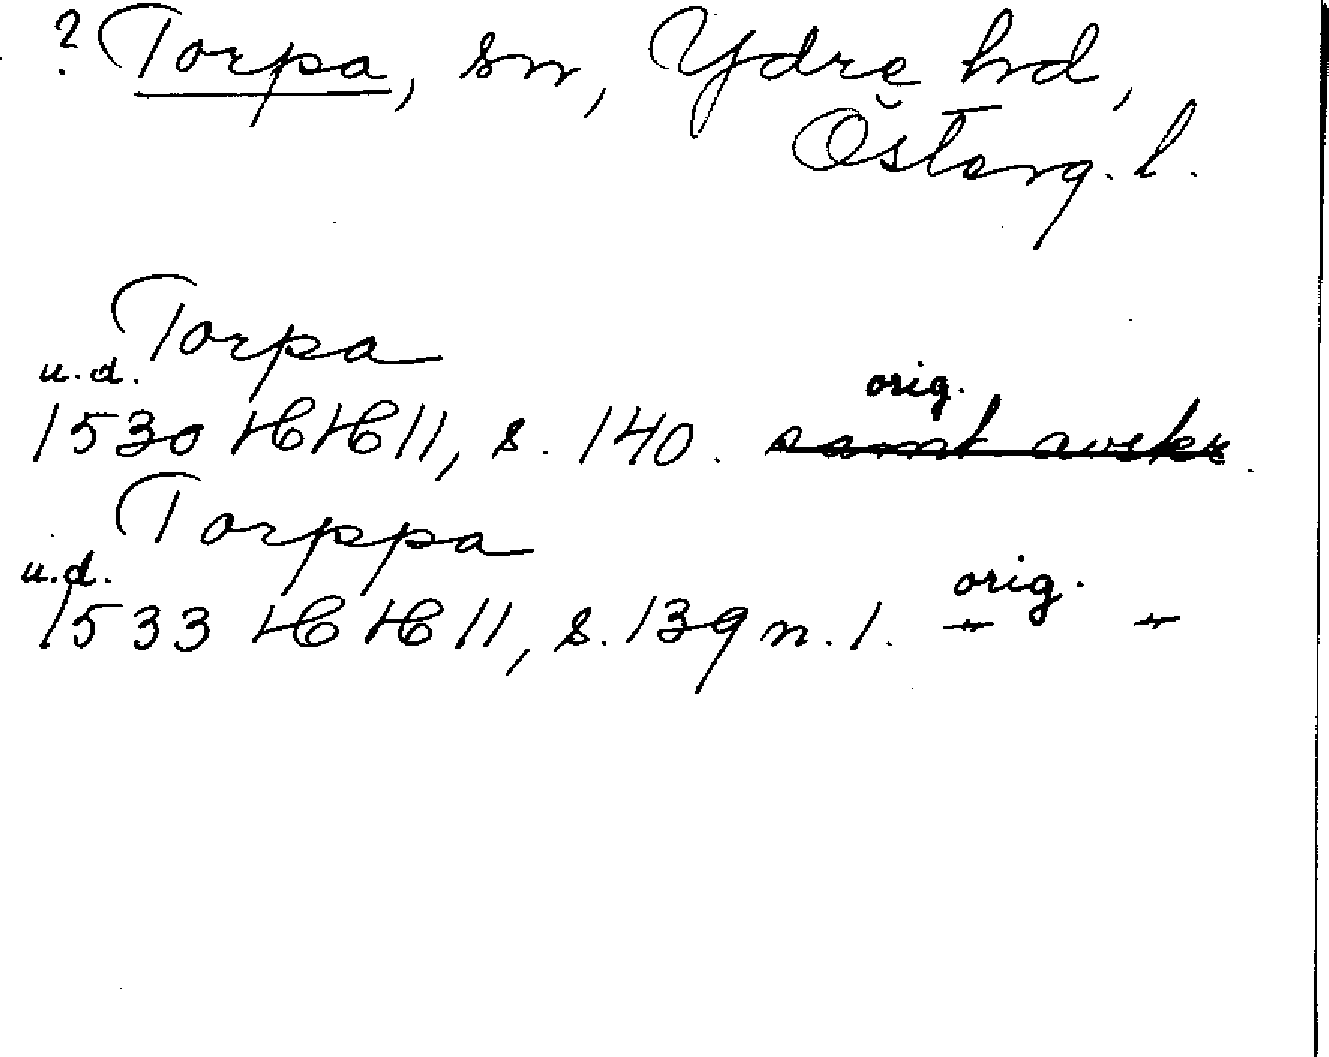 ? Torpa, sn, Ydre hd,
Österg. l.
Torpa
u.d. orig.
1530 HH 11, s. 140. samt avskr.
Torppa
u.d. orig.
1533 HH 11, s. 139 n. 1. -"- -"-